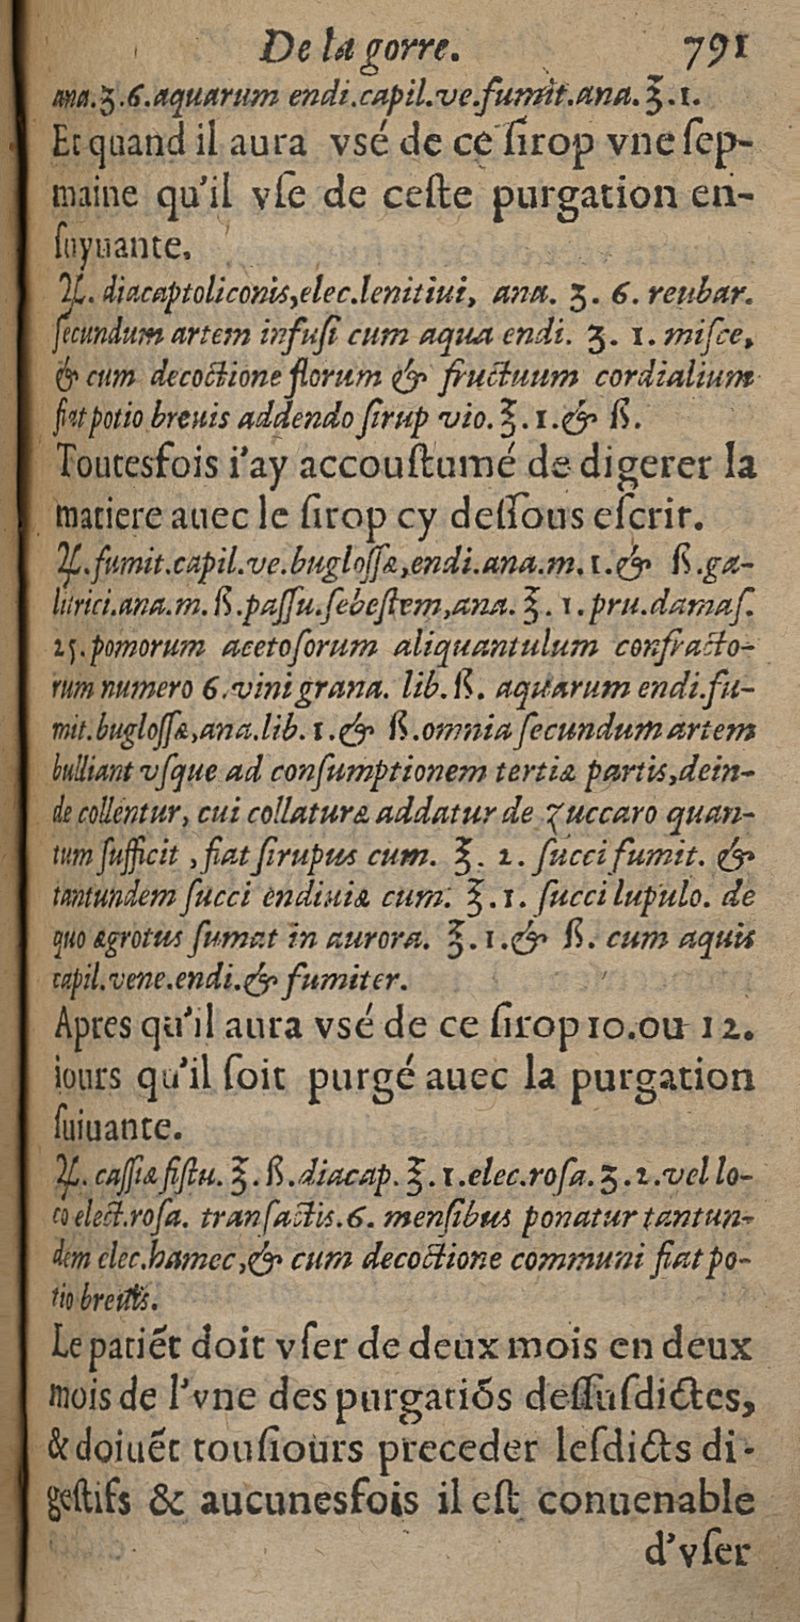 De la gorre. 791
ana.ʒ.6.aquarum endi.capil.ve.fumit.ana.℥.1.
Et quand il aura vsé de ce ſirop vne ſep-
maine qu'il vſe de ceſte purgation en-
ſuyuante.
♃. diacaptoliconis,elec.lenitiui, ana. ʒ. 6. reubar.
ſecundum artem infuſi cum aqua endi. ʒ. 1. miſce,
& cum decoctione florum & fructuum cordialium
fiat potio breuis addendo ſirup vio. ℥.1.& ß.
Toutesfois i'ay accouſtumé de digerer la
matiere auec le ſirop cy deſſous eſcrit.
♃.fumit.capil.ve.bugloſſæ,endi.ana.m.1.& ß.ga-
litrici.ana.m.ß.paſſu.ſebeſtem,ana.℥. 1.pru.damaſ.
25.pomorum acetoſorum aliquantulum confracto-
rum numero 6.vini grana. lib.ß. aquarum endi.fu-
mit.bugloſſæ,ana.lib. 1.& ß.omnia ſecundum artem
bulliant vſque ad conſumptionem tertiæ partis,dein-
de collentur, cui collaturæ addatur de zuccaro quan-
tum ſufficit ,fiat ſirupus cum. ℥. 2. ſucci fumit. &
tantundem ſucci endiuiæ cum. ℥.1. ſucci lupulo. de
quo ægrotus ſumat in aurora. ℥.1.& ß. cum aquis
capil.vene.endi.& fumiter.
Apres qu'il aura vsé de ce ſirop 10.ou 12.
iours qu'il ſoit purgé auec la purgation
ſuiuante.
♃. caſſiæ fiſtu. ℥.ß.diacap.℥.1.elec.roſa.ʒ.2.vel lo-
co elect.roſa. tranſactis.6. menſibus ponatur tantun-
dem elec.hamec,& cum decoctione communi fiat po-
tio breuis.
Le patiẽt doit vſer de deux mois en deux
mois de l'vne des purgatiõs deſſuſdictes,
& doiuẽt touſiours preceder leſdicts di-
geſtifs & aucunesfois il eſt conuenable
d'vſer